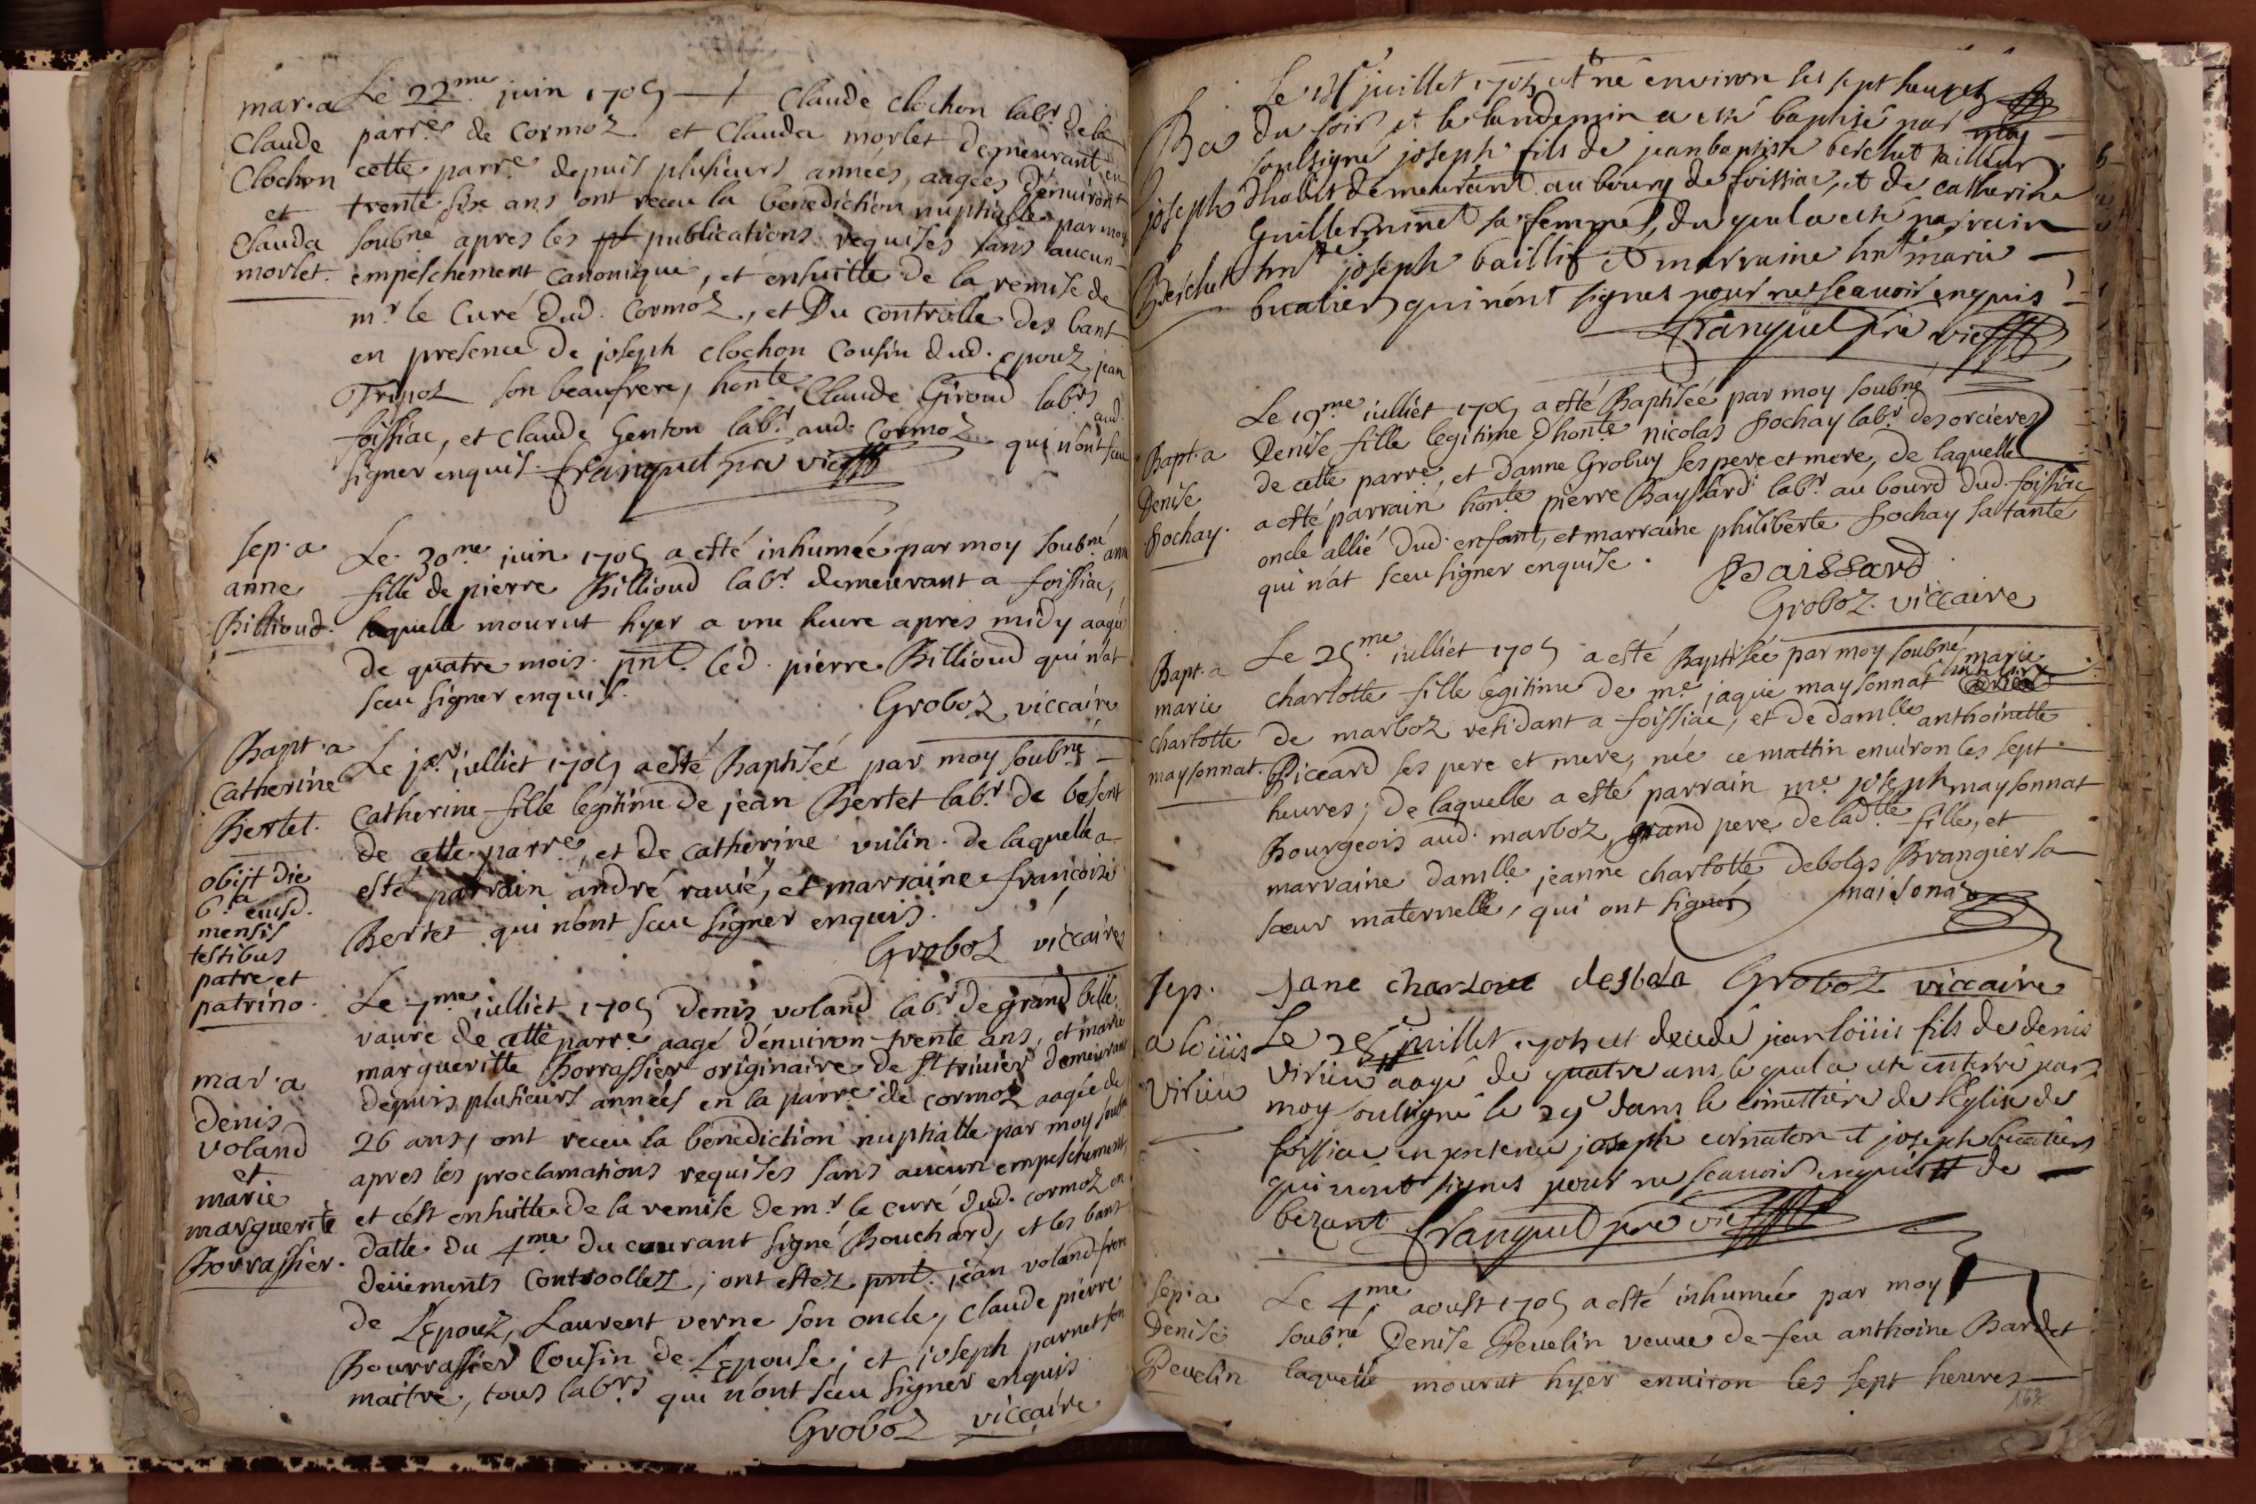 mar. a
Claude
Clochon
et
Clauda
morlet.
Le 22me juin 1705 Claude Clochon labr de la
parre de Cormoz et Clauda morlet demeurant en
cette parre depuis plusieurs années, aagées d'enuiront
trente six ans ont receu la benediction nuptialle par moy
soubné apres les publications requises sans aucun
empeschement canonique, et ensuitte de la remise de
mr le Curé dud. Cormoz, et Du controlle des bant
en presence de joseph clochon Cousin dud. epouz, jean
son beaufrere, honte Claude Giroud labrs aud.
foissiac, et claude Genton labr aud. Cormoz qui n'ont sceu
signer enquis. Franquet pre vic
sep. a
anne
Billioud.
Le 30me juin 1705 a esté inhumée par moy soubné anne
fille de pierre Billioud labr demeurant a foissiac,
laquelle mourut hyer a vne heure apres midy aagée
de quatre mois. pnt. led. pierre Billioud qui n'at
sceu signer enquis.
Groboz viccaire
Bapt. a
Catherine
Bertet.
obijt die
6a eiusd.
mensis
testibus
patre et
patrino.
Le jer julliet 1705 a esté Baptisée par moy soubné
Catherine fille legitime de jean Bertet labr de besent
de cette parre, et de Catherine vulin. de laquelle a
esté parrain andré rauié, et marraine françoise
Bertet qui n'ont sceu signer enquis.
Groboz viccaire
mar. a
Denis
voland
et
marie
marguerite
Borrassier.
Le 7me julliet 1705 Denis voland labr de grand belle
vaure de cette parre aagé d'enuiron trente ans, et marie
margueritte Borrassier originaire de st triuier demeurant
depuis plusieurs années en la parre de cormoz aagée de
26 ans, ont receu la benediction nuptialle par moy soubné
apres les proclamations requises sans aucun empeschement,
et c'est ensuitte de la remise de mr le curé dud. cormoz en
datte du 4me du courant signé Bouchard, et les bans
deüements controollez, ont estez pnt. jean voland frere
de L'epouz, Laurent verne son oncle, Claude pierre
Bourrassier Cousin de L'epouse, et joseph parnet son
maitre, tous labrs qui n'ont sceu signer enquis.
Groboz viccaire
Ba
joseph
Berchet
Le juillet 1705 est né environ les sept heures
du soir et le landemin a esté baptisé par
soulsigné joseph fils de jean baptiste berchet tailleur
d'habit demeurant au bourg de foissiac, et de catherine
Guillerminet sa femme, duquel a esté parrain
hnte joseph baillif et marraine hnte marie
bicatier qui n'ont signes pour ne sçeauoir enquis
Franquet pre vic
Bapt. a
Denise
Bochay.
Le 19me iulliet 1705 a esté Baptisée par moy soubné
Denise fille legitime d'honte nicolas Bochay labr des orcieres
de cette parre, et d'anne Grobuy ses pere et mere, de laquelle
a esté parrain honte pierre Bayssard labr au bourd dud. foissiac
oncle allié dud. enfant, et marraine philiberte Bochay sa tante
qui n'at sceu signer enquise.
PBaissard
Groboz. viccaire
Bapt. a
marie
charlotte
maysonnat.
Le 25me iulliet 1705 a esté Baptisée par moy soubné marie
charlotte fille legitime de me jaque maysonnat
de marboz residant a foissiac, et de damlle anthoinette
Piccard ses pere et mere, née ce mattin enuiron les sept
heures; de laquelle a esté parrain me joseph maysonnat
Bourgeois aud. marboz, grand pere de lad.lle fille, et
marraine damlle jeanne charlotte debolas Brangier sa
sœur maternelle, qui ont signés
maisona
Jane charlote desbola Groboz viccaire
sep.
a loüis
Virieu
Le juillet 1705 est decedé jean loüis fils de denis
Virieu aagé de quatre ans, lequel a esté enterré par
moy soulsigné le 29e dans le cimettiere de l'Eglise de
foissiac en presence joseph cornaton et joseph bicatiers
qui n'ont signes pour ne sçeauoir enquis de
bezant. Franquet pre vic
Sep. a
Denise
Peuelin
Le 4me aoust 1705 a esté inhumée par moy
soubné Denise Peuelin veuue de feu anthoine Bardet
laquelle mourut hyer enuiron les sept heures